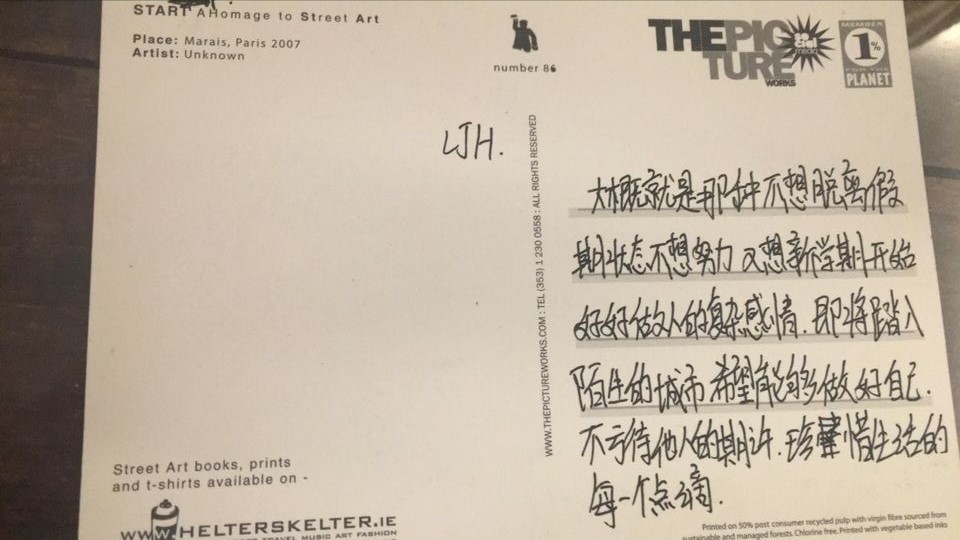 START A Homage to Street Art
Place: Marais, Paris 2007
Artist: Unknown
number 86
THEPIC
TURE
WORKS
MEMBER
1%
FOR THE
PLANET
LJH.
WWW.THEPICTUREWORKS.COM : TEL (353) 1 230 0558 : ALL RIGHTS RESERVED
大概就是那种不想脱离假
期状态不想努力又想新学期开始
好好做人的复杂感情.即将踏入
陌生的城市希望能够做好自己.
不亏待他人的期许.珍惜生活的
每一个点滴.
Street Art books, prints
and t-shirts available on -
WWW.HELTERSKELTER.IE
TRAVEL MUSIC ART FASHION
Printed on 50% post consumer recycled pulp with virgin fibre sourced from
sustainable and managed forests. Chlorine free. Printed with vegetable based inks